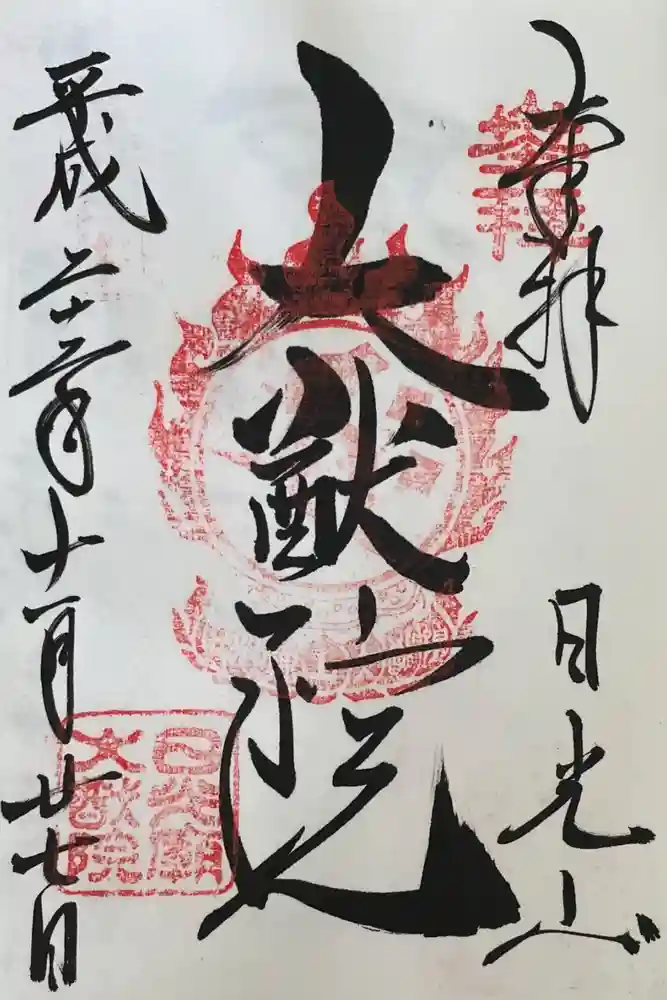 奉拝
日光山
大猷院
平成二十三年十一月廿七日
日光廟
大猷院